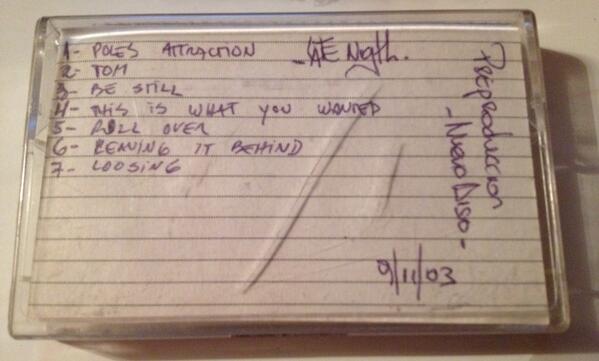 1- POLES ATTRACTION
- LATE Nigth.
2- TOM
3- BE STILL
4- THIS IS WHAT YOU WANTED
5- ROLL OVER
6- LEAVING IT BEHIND
7- LOOSING
PREPRODUCCION
- NUEVO DISCO -
9/11/03